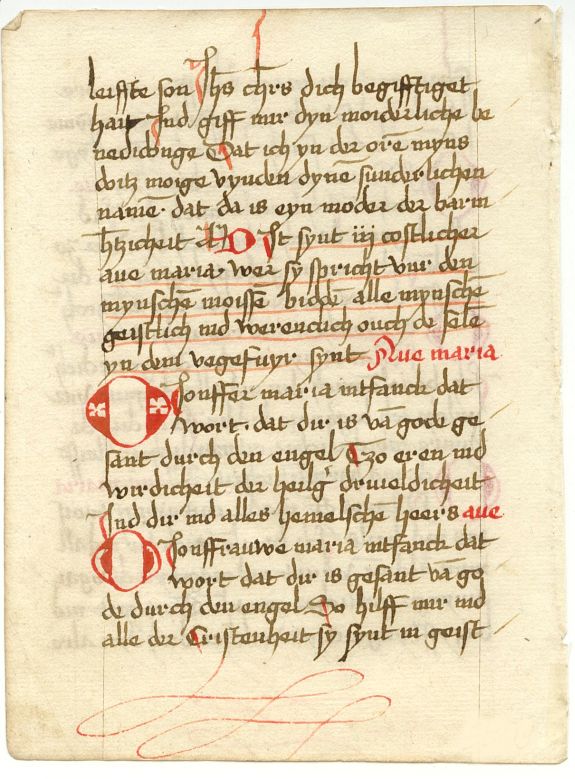 leiffte son Jhs chrs dich begifftiget
hait Jnd giff mir dyn moiderliche be
nedidonge Dat ich yn der orē myns
doitz moige vynden dynē sunderlichen
namē. dat da is eyn moder der barm
htzicheit Dyt synt iij costlicher
aue maria. wer sy spricht vur den
mynschē moissē biddē alle mynschē
geistlich ind werenclich ouch de sele
yn dem vegefuyr synt Aue maria
O Jouffer maria intfanck dat
wort. dat dir is vā gode ge
sant durch den engel Tzo eren ind
wirdicheit der heilg' drıueldicheit
Jnd dir ind alles hemelschē heers aue
O Jouffrauwe maria intfanck dat
wort dat dir is gesant vā go
de durch den engel So hilff mir ind
alle der Cristenheit sy synt in geist